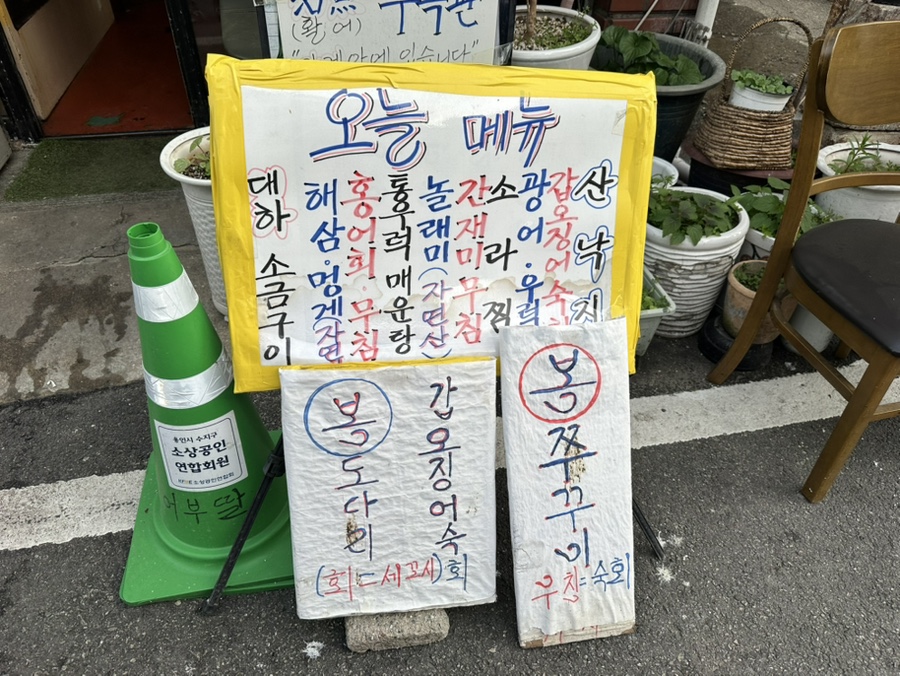 (활어)
오늘 메뉴
대하 소금구이
해삼·멍게
홍어회·무침
통우럭매운탕
놀래미(자연산)
간재미무침
소라찜
광어·우럭
갑오징어숙회
산낙지
봄
도다리
(회=세꼬시)
갑오징어숙회
봄
쭈꾸미
무침=숙회
용인시 수지구
소상공인
연합회원
어부딸